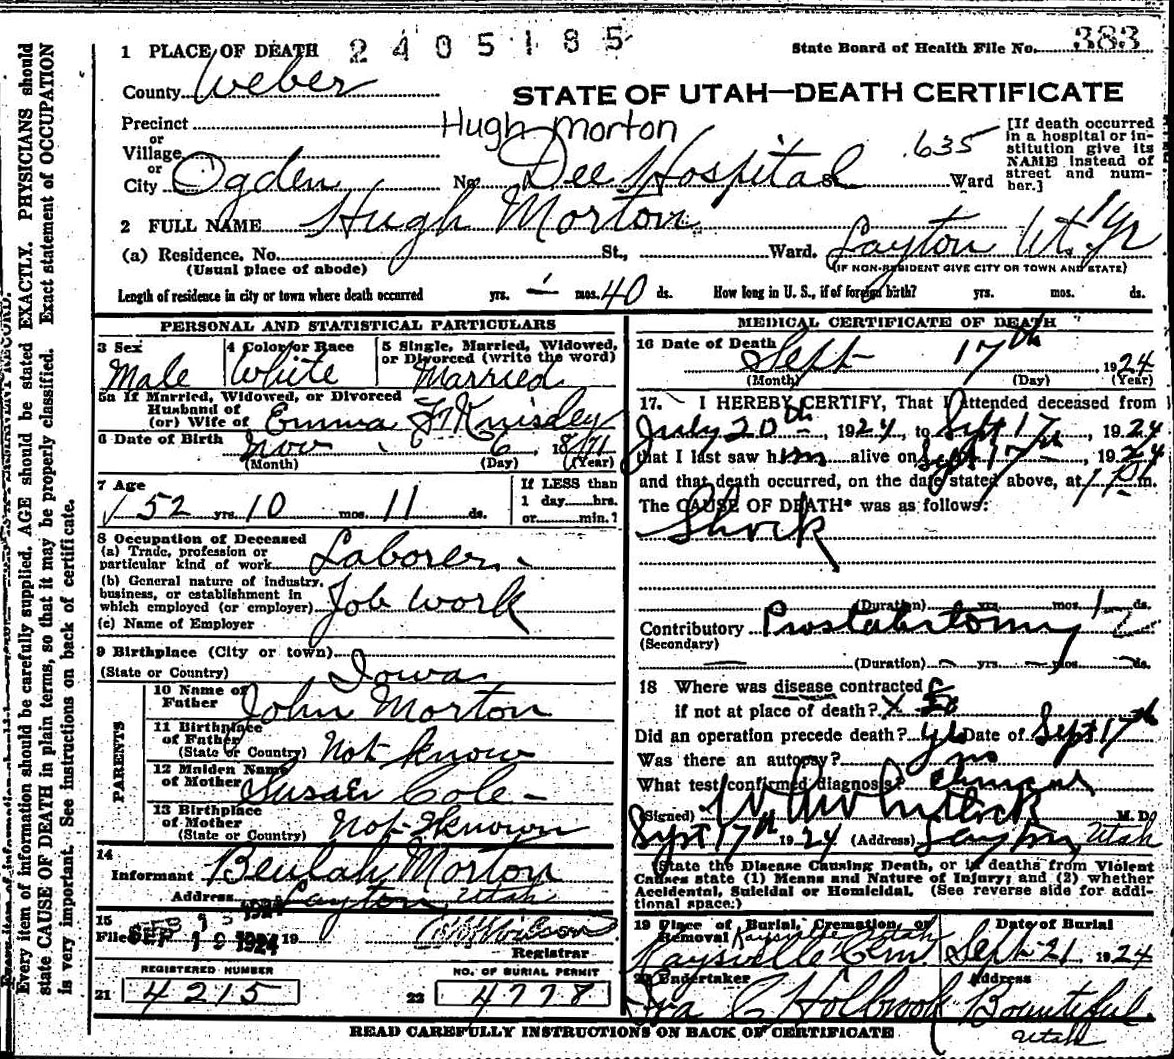 1 PLACE OF DEATH 2405185 State Board of Health File No. 383
County Weber
STATE OF UTAH—DEATH CERTIFICATE
Precinct Hugh Morton
or
Village
or
City Ogden No. Dee Hospital St. Ward .635
[If death occurred
in a hospital or in-
stitution give its
NAME instead of
street and num-
ber.]
2 FULL NAME Hugh Morton
(a) Residence. No. St., Ward. Layton Ut. 1 yr
(Usual place of abode) (IF NON-RESIDENT GIVE CITY OR TOWN AND STATE)
Length of residence in city or town where death occurred yrs. — mos. 40 ds. How long in U. S., if of foreign birth? yrs. mos. ds.
PERSONAL AND STATISTICAL PARTICULARS
3 Sex
Male
4 Color or Race
White
5 Single, Married, Widowed,
or Divorced (write the word)
Married
5a If Married, Widowed, or Divorced
Husband of
(or) Wife of Emma F Knisley
6 Date of Birth Nov 6 1871
(Month) (Day) (Year)
7 Age
52 yrs. 10 mos. 11 ds.
If LESS than
1 day hrs.
or min.?
8 Occupation of Deceased
(a) Trade, profession or
particular kind of work Laborer
(b) General nature of industry,
business, or establishment in
which employed (or employer) Job Work
(c) Name of Employer
9 Birthplace (City or town)
(State or Country) Iowa
PARENTS
10 Name of
Father John Morton
11 Birthplace
of Father
(State or Country) Not know
12 Maiden Name
of Mother Susan Cole
13 Birthplace
of Mother
(State or Country) Not known
14
Informant Beulah Morton
Address Layton Utah
15
Filed SEP 19 1924 19
Registrar
REGISTERED NUMBER
21 4215
NO. OF BURIAL PERMIT
22 4778
MEDICAL CERTIFICATE OF DEATH
16 Date of Death
Sept 17th 1924
(Month) (Day) (Year)
17. I HEREBY CERTIFY, That I attended deceased from
July 20th, 1924, to Sept 17th, 1924
that I last saw him alive on Sept 17th, 1924
and that death occurred, on the date stated above, at 1 P.m.
The CAUSE OF DEATH* was as follows:
Shock
(Duration) yrs. mos. ds.
Contributory
(Secondary)
(Duration) yrs. mos. ds.
18 Where was disease contracted
if not at place of death? X
Did an operation precede death? yes Date of Sept 17th
Was there an autopsy? no
What test confirmed diagnosis? clinical
(Signed) Whitlock M. D.
Sept 17th 1924 (Address) Layton Utah
(State the Disease Causing Death, or in deaths from Violent
Causes state (1) Means and Nature of Injury; and (2) whether
Accidental, Suicidal or Homicidal. (See reverse side for addi-
tional space.)
19 Place of Burial, Cremation, or
Removal Kaysville Utah
Kaysville Cem
Date of Burial
Sept 21 1924
20 Undertaker
Holbrook
Address
Bountiful
Utah
READ CAREFULLY INSTRUCTIONS ON BACK OF CERTIFICATE
Every item of information should be carefully supplied. AGE should be stated EXACTLY. PHYSICIANS should
state CAUSE OF DEATH in plain terms, so that it may be properly classified. Exact statement of OCCUPATION
is very important. See instructions on back of certificate.